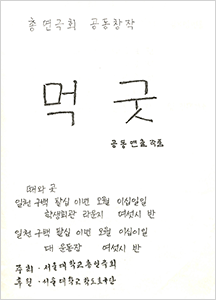 총연극회 공동창작
먹굿
공동연출 작품
때와 곳
일천 구백 팔십 이년 오월 이십일일
학생회관 라운지 여섯시 반
일천 구백 팔십 이년 오월 이십이일
대 운동장 여섯시 반
주최·서울대학교총연극회
후원·서울대학교학도호국단